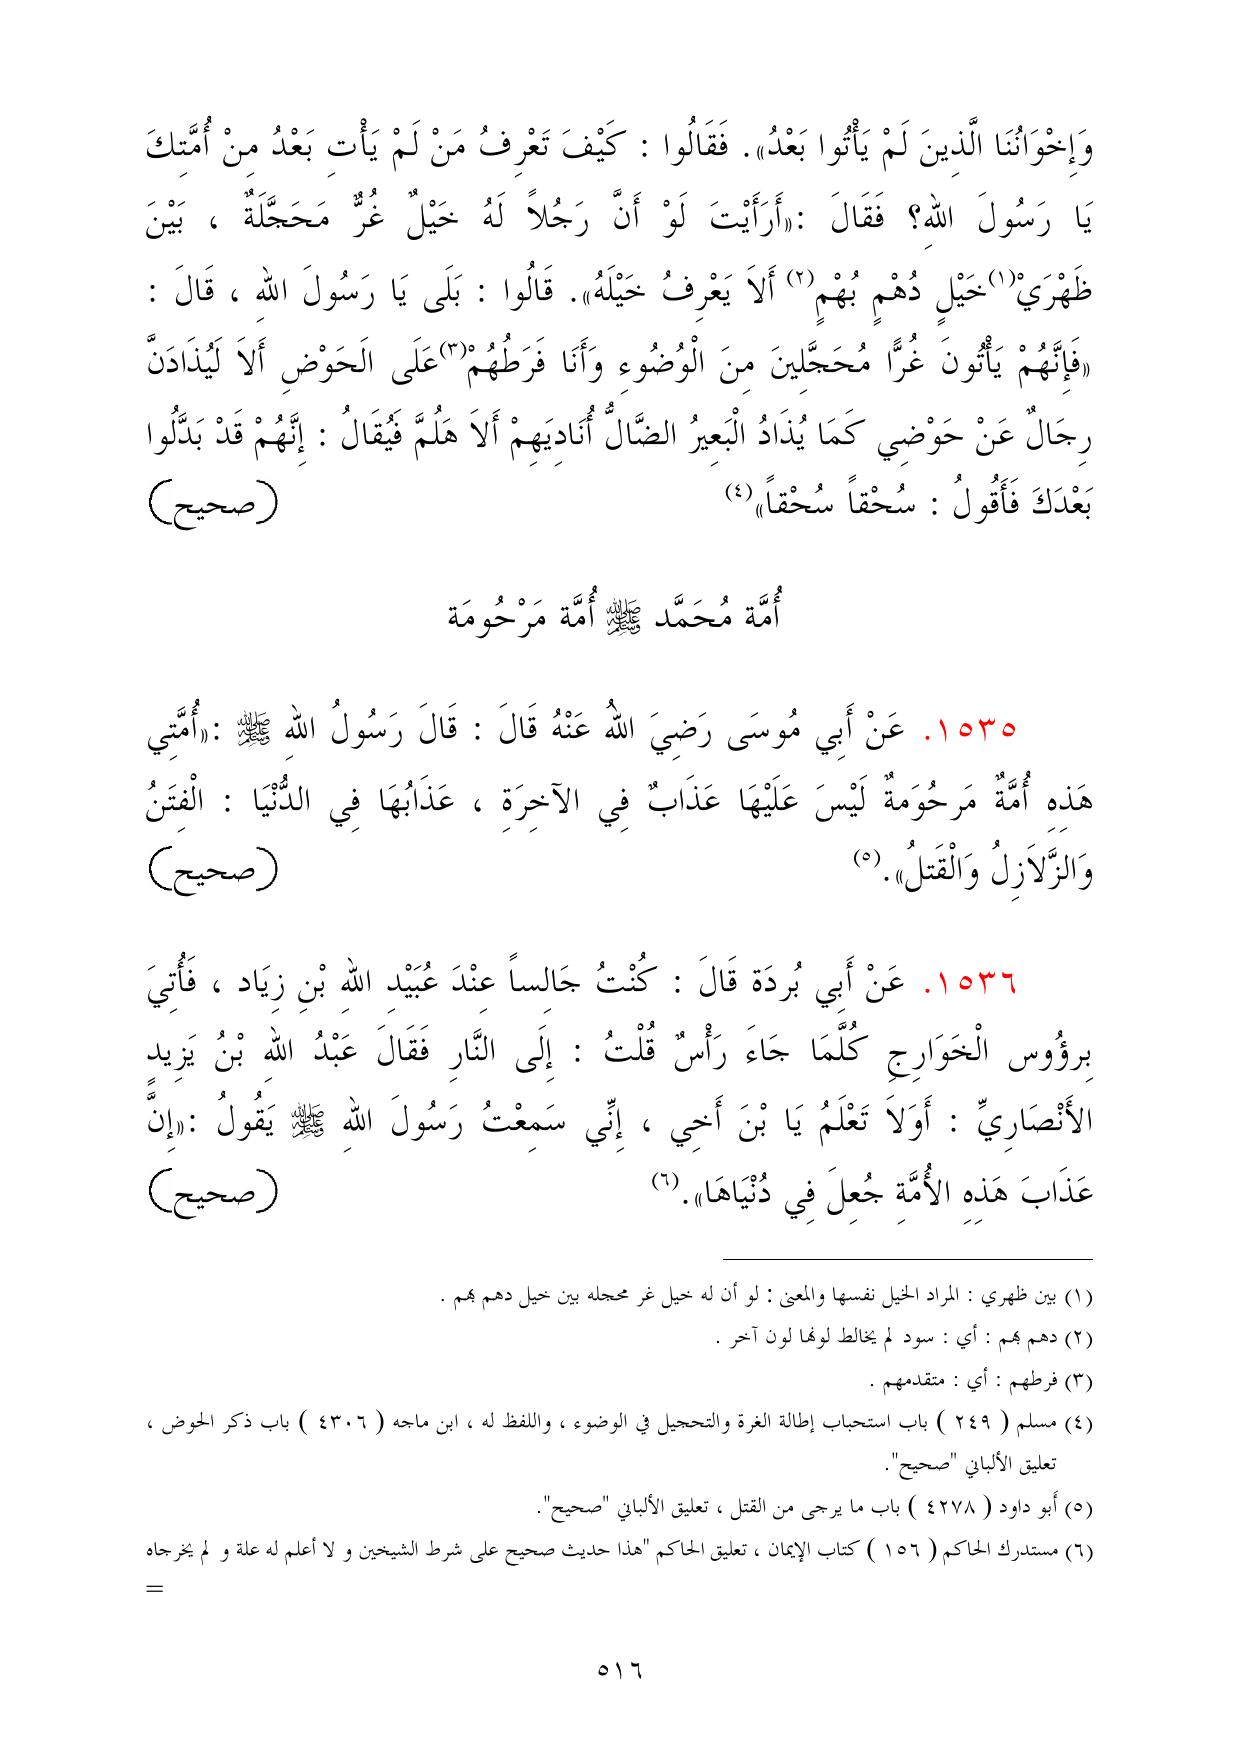 وَإِخْوَانُنَا الَّذِينَ لَمْ يَأْتُوا بَعْدُ». فَقَالُوا : كَيْفَ تَعْرِفُ مَنْ لَمْ يَأْتِ بَعْدُ مِنْ أُمَّتِكَ
يَا رَسُولَ اللهِ؟ فَقَالَ :«أَرَأَيْتَ لَوْ أَنَّ رَجُلاً لَهُ خَيْلٌ غُرٌّ مَحَجَّلَةٌ ، بَيْنَ
ظَهْرَيْ(١)خَيْلٍ دُهْمٍ بُهْمٍ(٢) أَلاَ يَعْرِفُ خَيْلَهُ». قَالُوا : بَلَى يَا رَسُولَ اللهِ ، قَالَ :
«فَإِنَّهُمْ يَأْتُونَ غُرًّا مُحَجَّلِينَ مِنَ الْوُضُوءِ وَأَنَا فَرَطُهُمْ(٣)عَلَى الَحَوْضِ أَلاَ لَيُذَادَنَّ
رِجَالٌ عَنْ حَوْضِي كَمَا يُذَادُ الْبَعِيرُ الضَّالُّ أُنَادِيَهِمْ أَلاَ هَلُمَّ فَيُقَالُ : إِنَّهُمْ قَدْ بَدَّلُوا
بَعْدَكَ فَأَقُولُ : سُحْقاً سُحْقاً»(٤) (صحيح)
أُمَّة مُحَمَّد ﷺ أُمَّة مَرْحُومَة
١٥٣٥. عَنْ أَبِي مُوسَى رَضِيَ اللهُ عَنْهُ قَالَ : قَالَ رَسُولُ اللهِ ﷺ :«أُمَّتِي
هَذِهِ أُمَّةٌ مَرحُوَمةٌ لَيْسَ عَلَيْهَا عَذَابٌ فِي الآخِرَةِ ، عَذَابُهَا فِي الدُّنْيَا : الْفِتَنُ
وَالزَّلاَزِلُ وَالْقَتلُ».(٥) (صحيح)
١٥٣٦. عَنْ أَبِي بُردَة قَالَ : كُنْتُ جَالِساً عِنْدَ عُبَيْدِ اللهِ بْنِ زِيَاد ، فَأُتِيَ
بِرؤُوس الْخَوَارِجِ كُلَّمَا جَاءَ رَأْسٌ قُلْتُ : إِلَى النَّارِ فَقَالَ عَبْدُ اللهِ بْنُ يَزِيدٍ
الأَنْصَارِيِّ : أَوَلاَ تَعْلَمُ يَا بْنَ أَخِي ، إِنِّي سَمِعْتُ رَسُولَ اللهِ ﷺ يَقُولُ :«إِنَّ
عَذَابَ هَذِهِ الأُمَّةِ جُعِلَ فِي دُنْيَاهَا».(٦) (صحيح)
(١) بين ظهري : المراد الخيل نفسها والمعنى : لو أن له خيل غر محجله بين خيل دهم بهم .
(٢) دهم بهم : أي : سود لم يخالط لونها لون آخر .
(٣) فرطهم : أي : متقدمهم .
(٤) مسلم ( ٢٤٩ ) باب استحباب إطالة الغرة والتحجيل في الوضوء ، واللفظ له ، ابن ماجه ( ٤٣٠٦ ) باب ذكر الحوض ،
تعليق الألباني "صحيح".
(٥) أَبو داود ( ٤٢٧٨ ) باب ما يرجى من القتل ، تعليق الألباني "صحيح".
(٦) مستدرك الحاكم ( ١٥٦ ) كتاب الإيمان ، تعليق الحاكم "هذا حديث صحيح على شرط الشيخين و لا أعلم له علة و لم يخرجاه
=
٥١٦